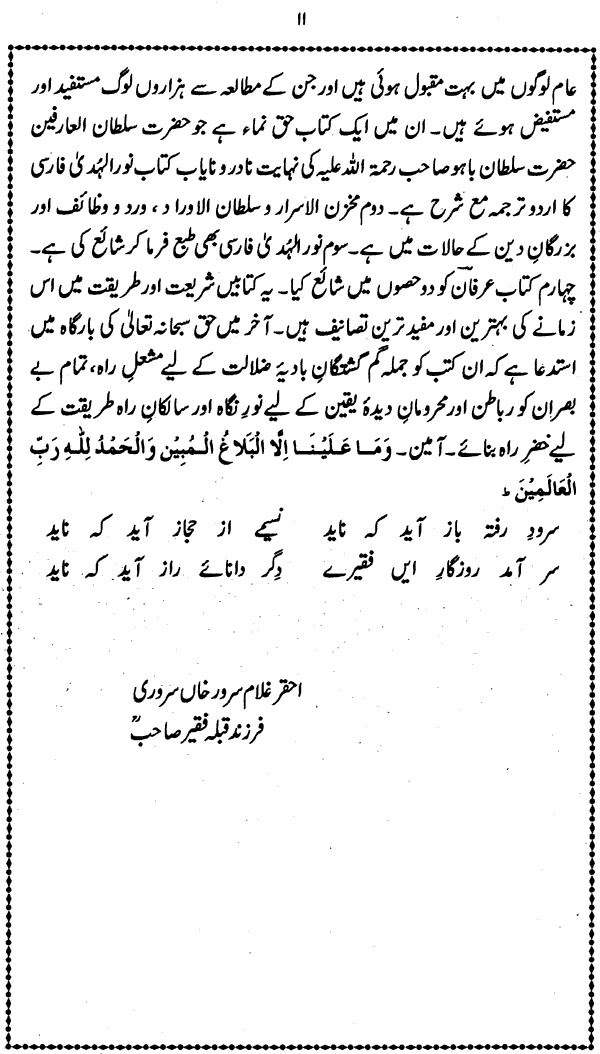 ۱۱
عام لوگوں میں بہت مقبول ہوئی ہیں اور جن کے مطالعہ سے ہزاروں لوگ مستفید اور
مستفیض ہوئے ہیں۔ ان میں ایک کتاب حق نماء ہے جو حضرت سلطان العارفین
حضرت سلطان باہو صاحب رحمۃ اللہ علیہ کی نہایت نادر و نایاب کتاب نور الہُدیٰ فارسی
کا اردو ترجمہ مع شرح ہے۔ دوم مخزن الاسرار و سلطان الاوراد، ورد و وظائف اور
بزرگانِ دین کے حالات میں ہے۔ سوم نور الہُدیٰ فارسی بھی طبع فرما کر شائع کی ہے۔
چہارم کتاب عرفان کو دو حصوں میں شائع کیا۔ یہ کتابیں شریعت اور طریقت میں اس
زمانے کی بہترین اور مفید ترین تصانیف ہیں۔ آخر میں حق سبحانہ تعالیٰ کی بارگاہ میں
استدعا ہے کہ ان کتب کو جملہ گم گشتگانِ بادیۂ ضلالت کے لیے مشعلِ راہ، تمام بے
بصران کور باطن اور محرومانِ دیدۂ یقین کے لیے نورِ نگاہ اور سالکانِ راہ طریقت کے
لیے خضرِ راہ بنائے۔ آمین۔ وَمَا عَلَيْنَا اِلَّا الْبَلَاغُ الْمُبِيْن وَالْحَمْدُ لِلّٰہِ رَبِّ
الْعَالَمِيْنَ ط
سرودِ رفتہ باز آید کہ ناید نسیمے از حجاز آید کہ ناید
سر آمد روزگارِ ایں فقیرے دِگر دانائے راز آید کہ ناید
احقر غلام سرور خاں سروری
فرزند قبلہ فقیر صاحبؒ